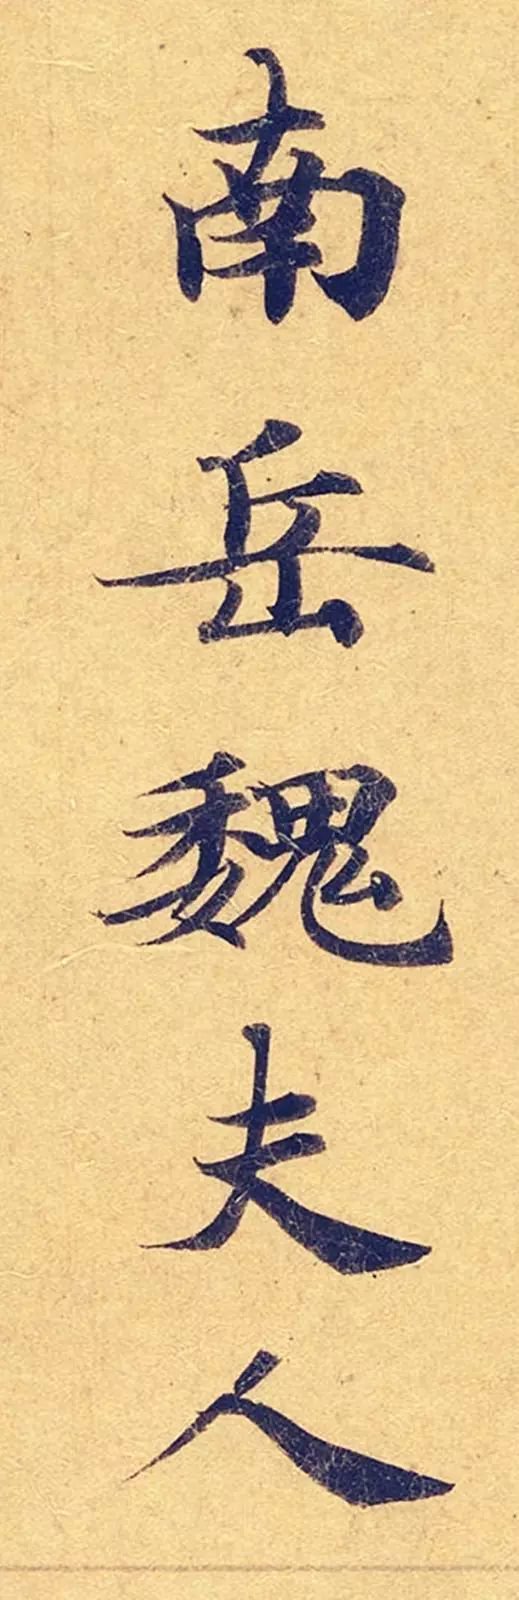 南岳魏夫人